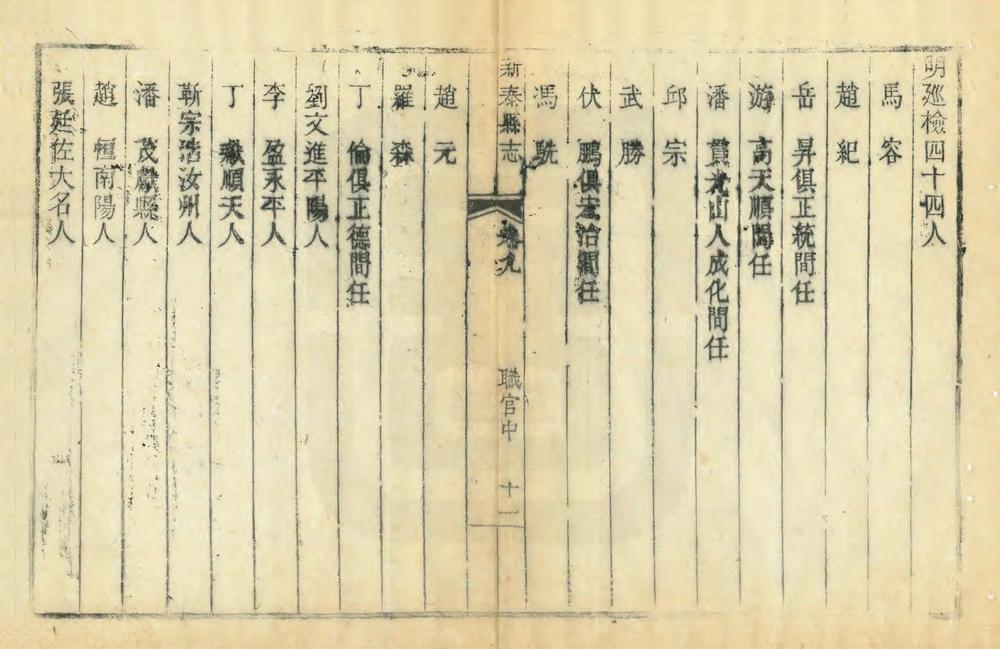 明廵檢四十四人
馬容
趙紀
岳昇俱正統間任
游高天順間任
潘貫光山人成化間任
邱宗
武勝
伏鵬俱宏治間任
馮駪
新泰縣志 卷九 職官中 十一
趙元
羅森
丁倫俱正德間任
劉文進平陽人
李盈永平人
丁 順天人
靳宗浩汝州人
潘茂 縣人
趙恒南陽人
張廷佐大名人